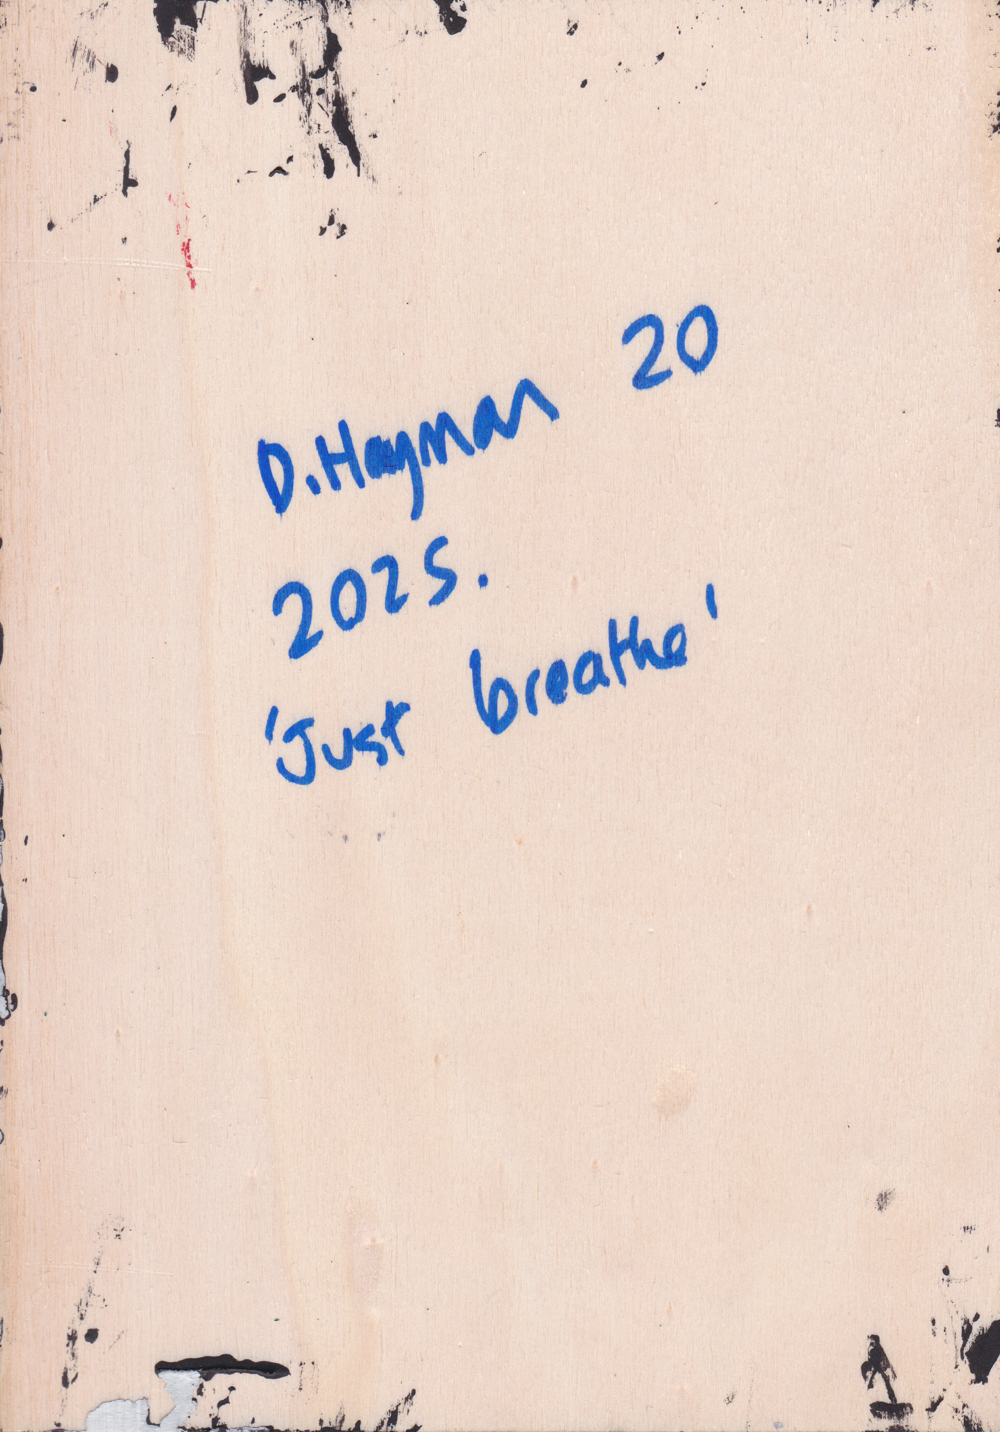 D.Hayman 20
2025.
'Just breathe'